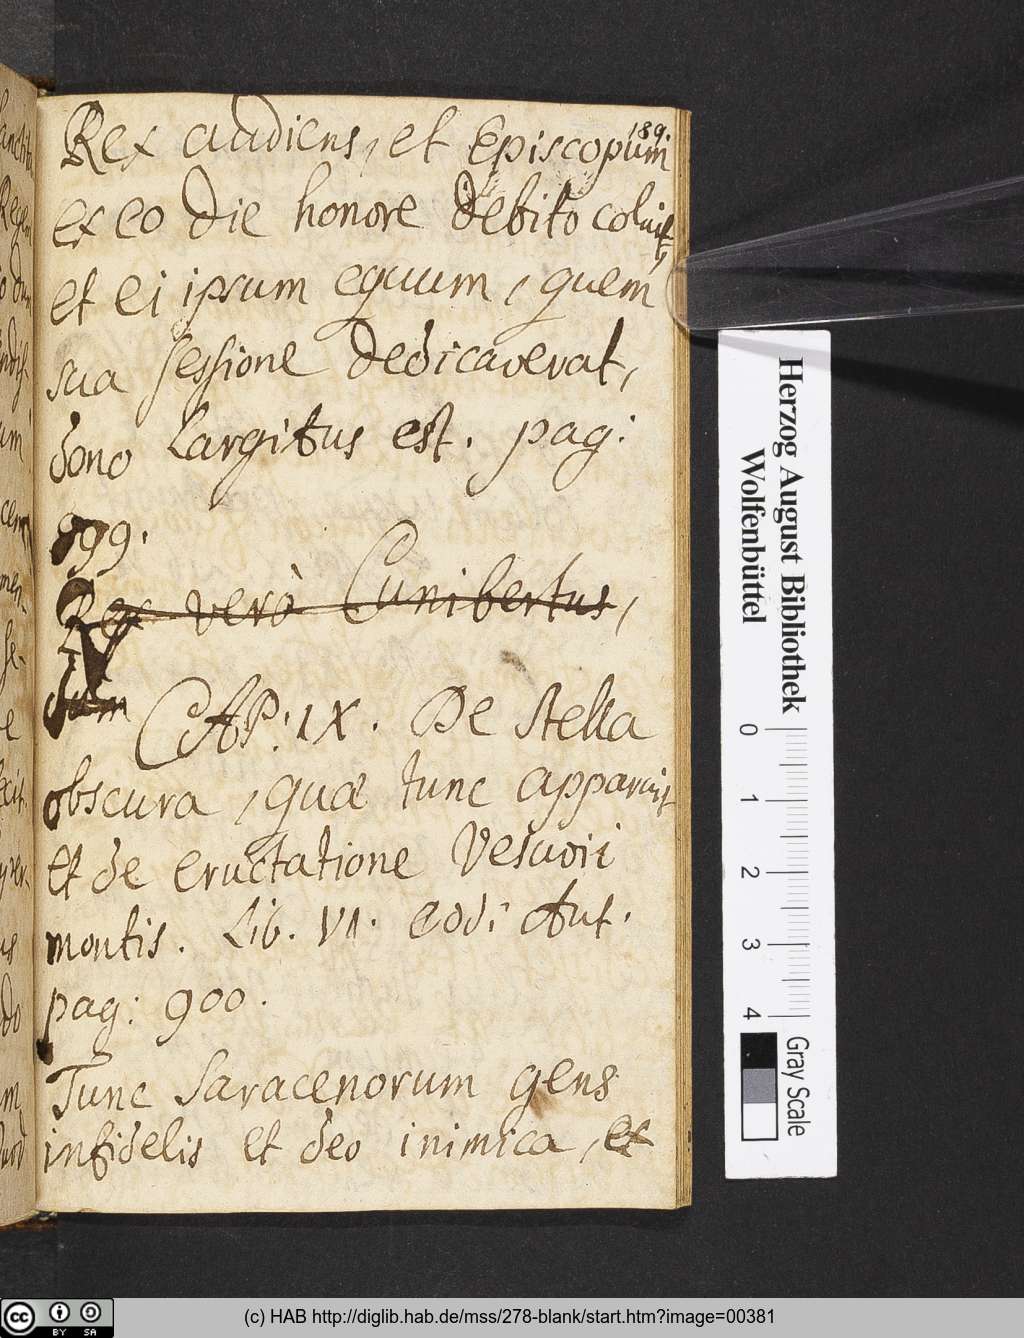 189.
Rex audiens, et Episcopum
ex eo die honore debito coluit,
et ei ipsum equum, quem
sua sessione dedicaverat,
dono largitus est. pag:
899.
Rex verò Cunibertus,
dum
CAP: IX. De stella
obscura, quae tunc apparuit
et de eructatione Vesuvii
montis. Lib. VI. eod: Aut.
pag: 900.
Tunc Saracenorum gens
infidelis et deo inimica, ex
Herzog August Bibliothek
Wolfenbüttel
0 1 2 3 4
Gray Scale
cc BY SA
(c) HAB http://diglib.hab.de/mss/278-blank/start.htm?image=00381